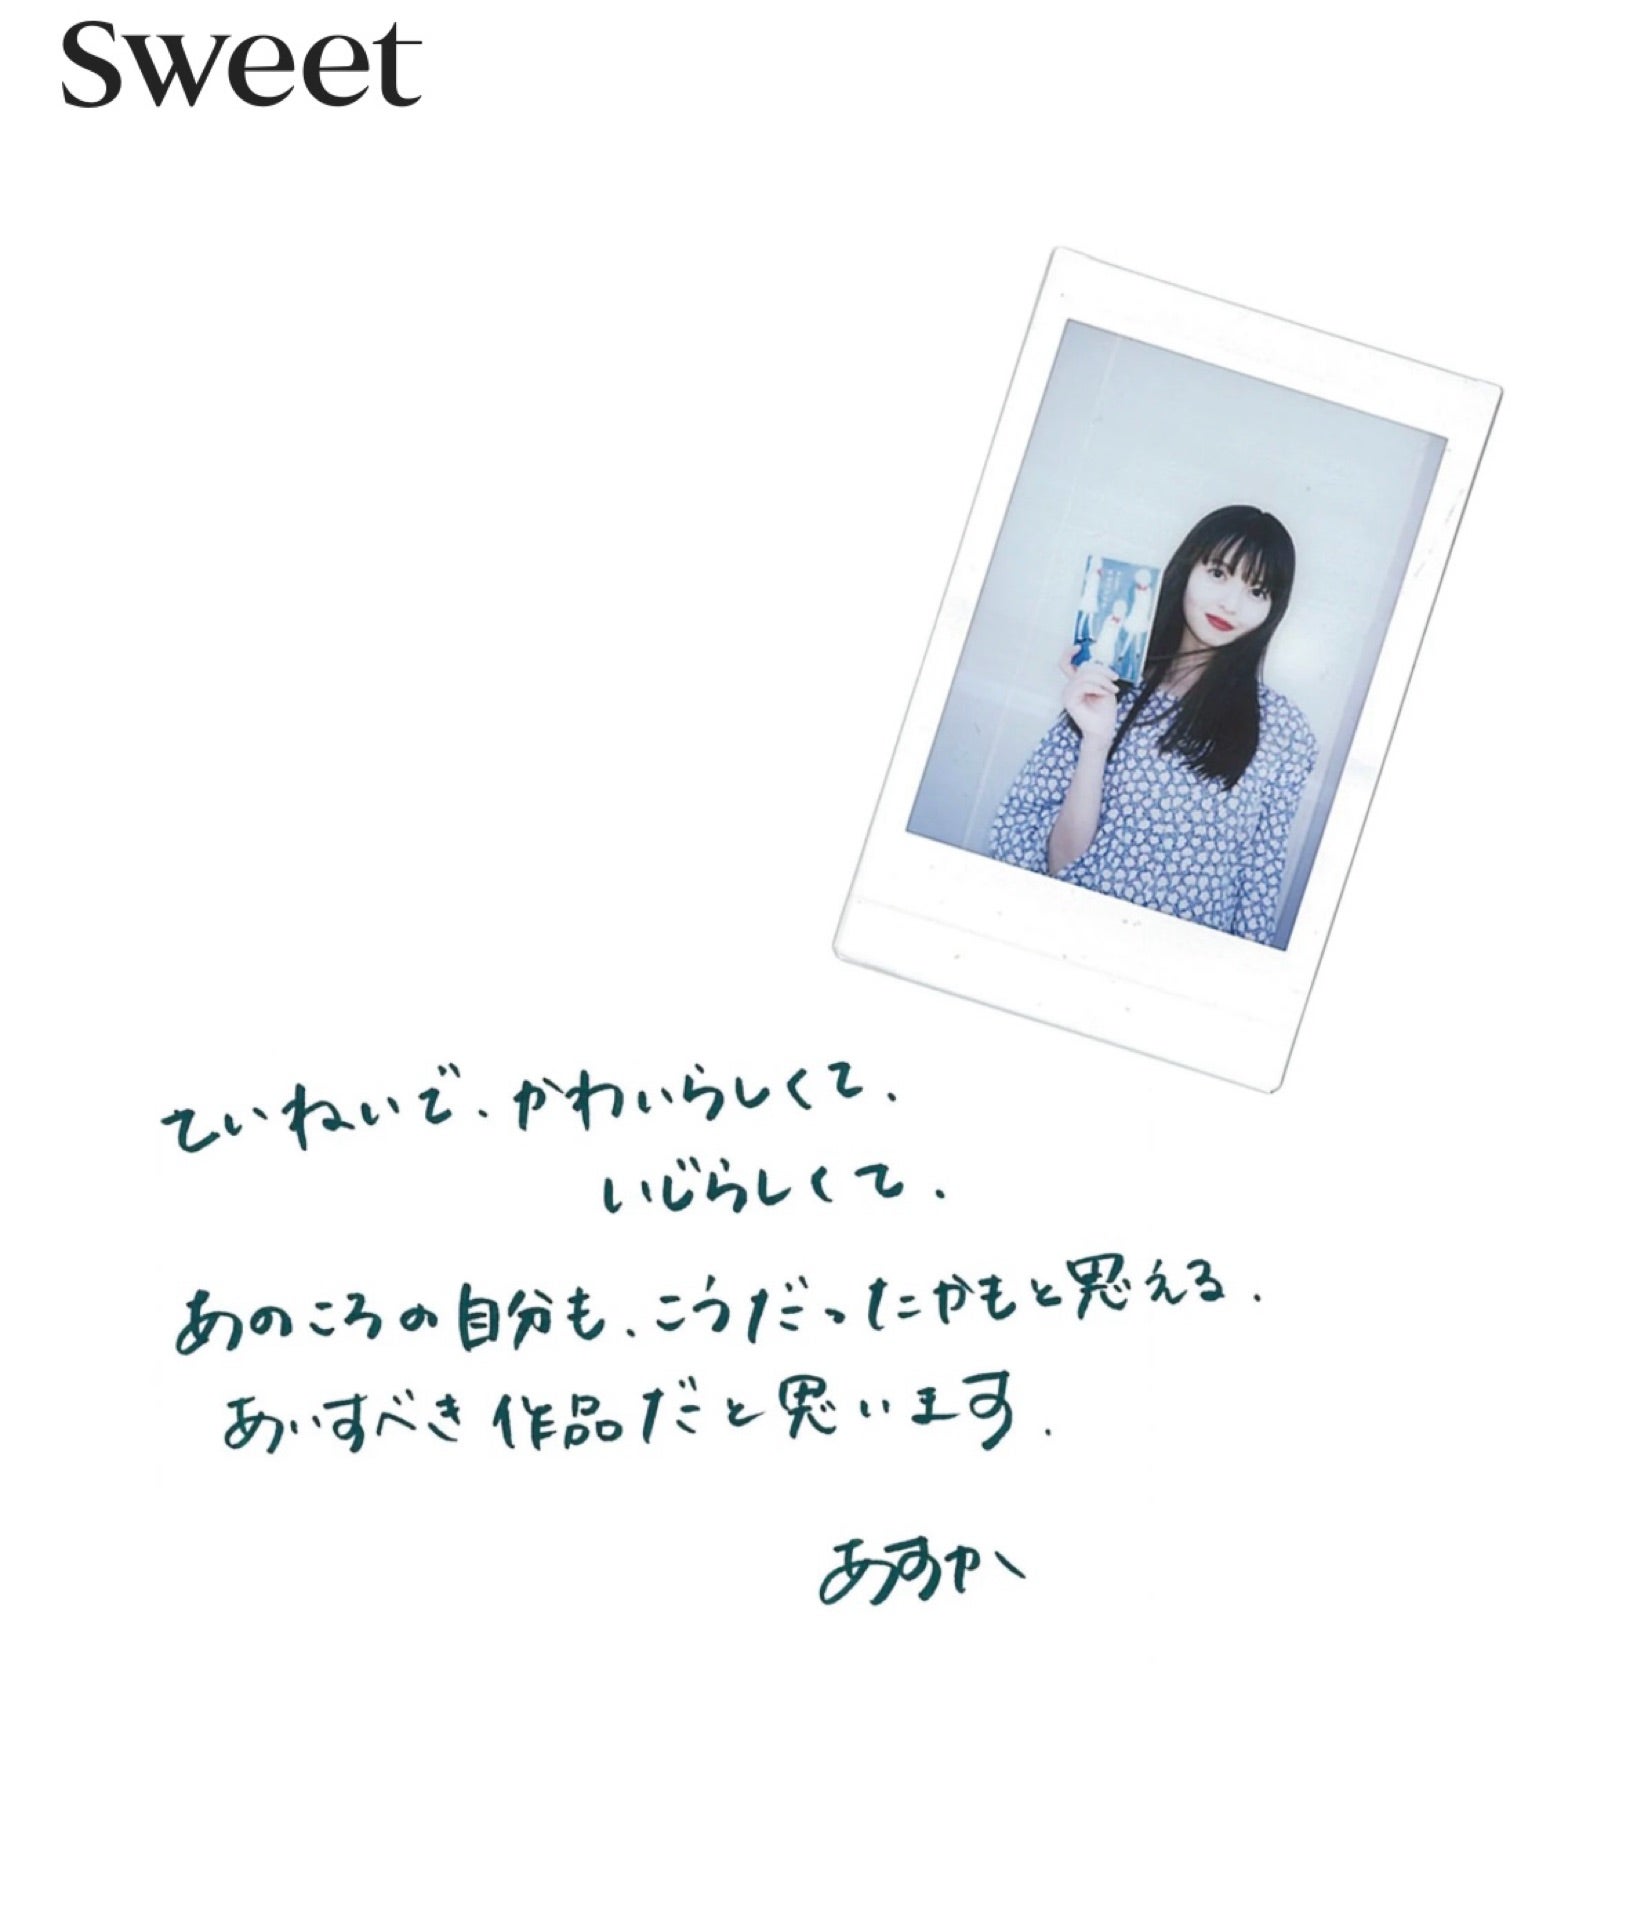 Sweet
ていねいで、かわいらしくて、
いじらしくて、
あのころの自分も、こうだったかもと思える、
あいすべき作品だと思います、
あすか